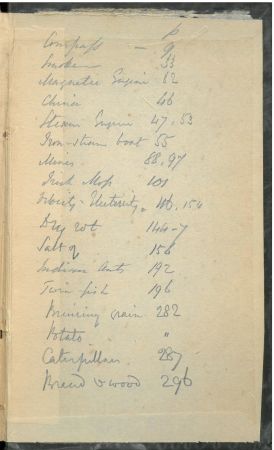 p
Compass - 9
Smoke 33
Magnetic Engine 62
China 46
Steam Engine 47, 53
Iron-steam boat 55
Mines 88, 97
Irish Moss 101
Electricity 154
Dry rot 144-7
Salt of 156
Indian Ants 192
Twin fish 196
Burning rain 282
Potato "
Caterpillar 287
Bread & wood 296